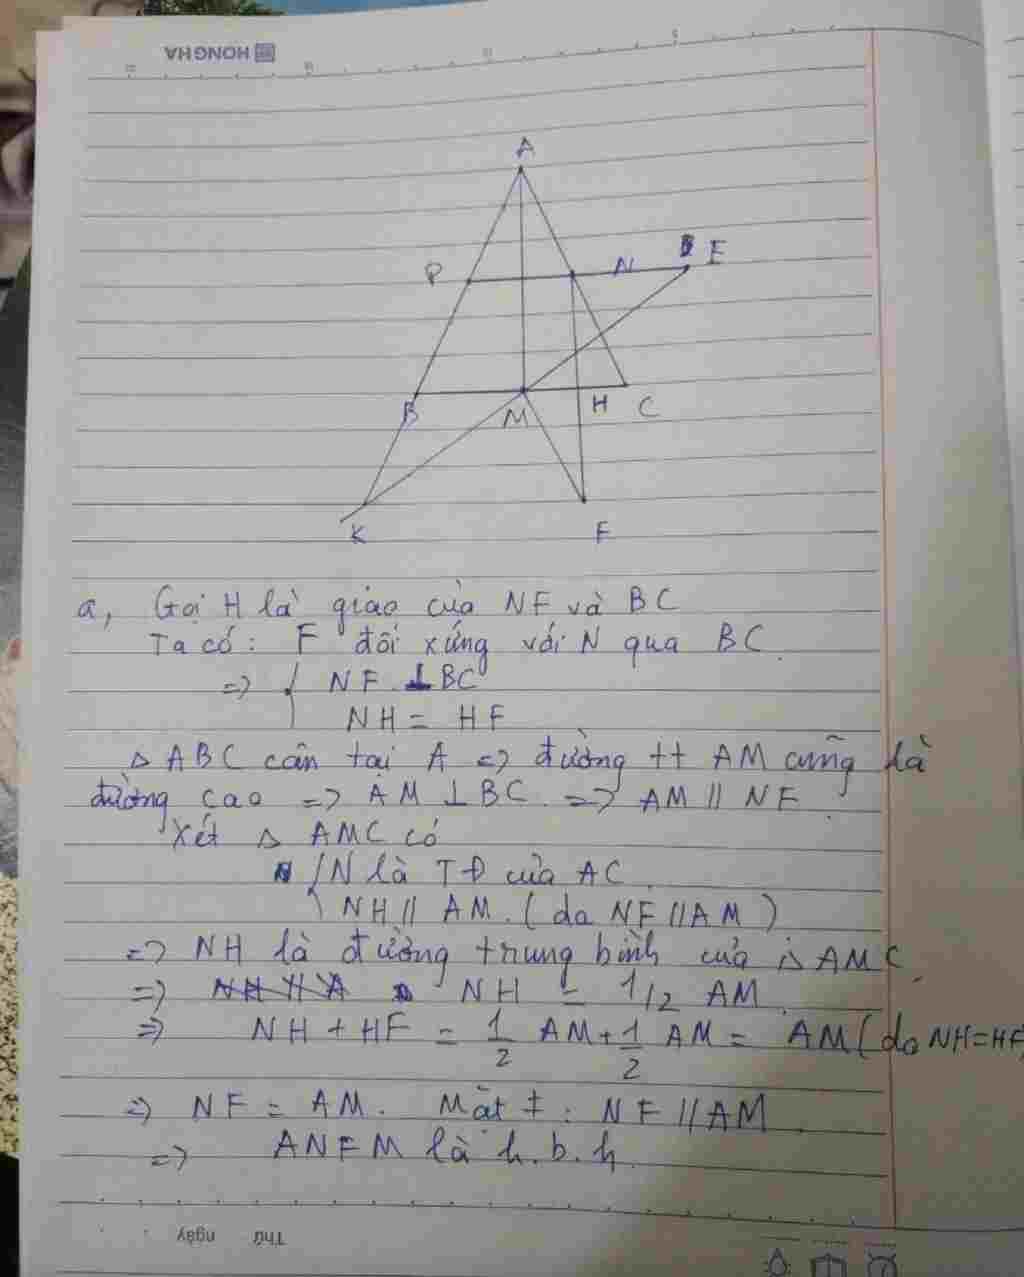 HONG HA
A
P
N
E
B
M
H
C
K
F
a, Gọi H là giao của NF và BC
Ta có: F đối xứng với N qua BC.
=> { NF ⊥ BC
NH = HF
Δ ABC cân tại A => đường tt AM cũng là
đường cao => AM ⊥ BC. => AM // NF.
Xét Δ AMC có
{ N là TĐ của AC.
NH // AM. (do NF // AM)
=> NH là đường trung bình của Δ AMC.
=> NH = 1/2 AM.
=> NH + HF = 1/2 AM + 1/2 AM = AM (do NH = HF)
=> NF = AM. Mặt ‡: NF // AM.
=> ANFM là h.b.h.
Thứ ngày